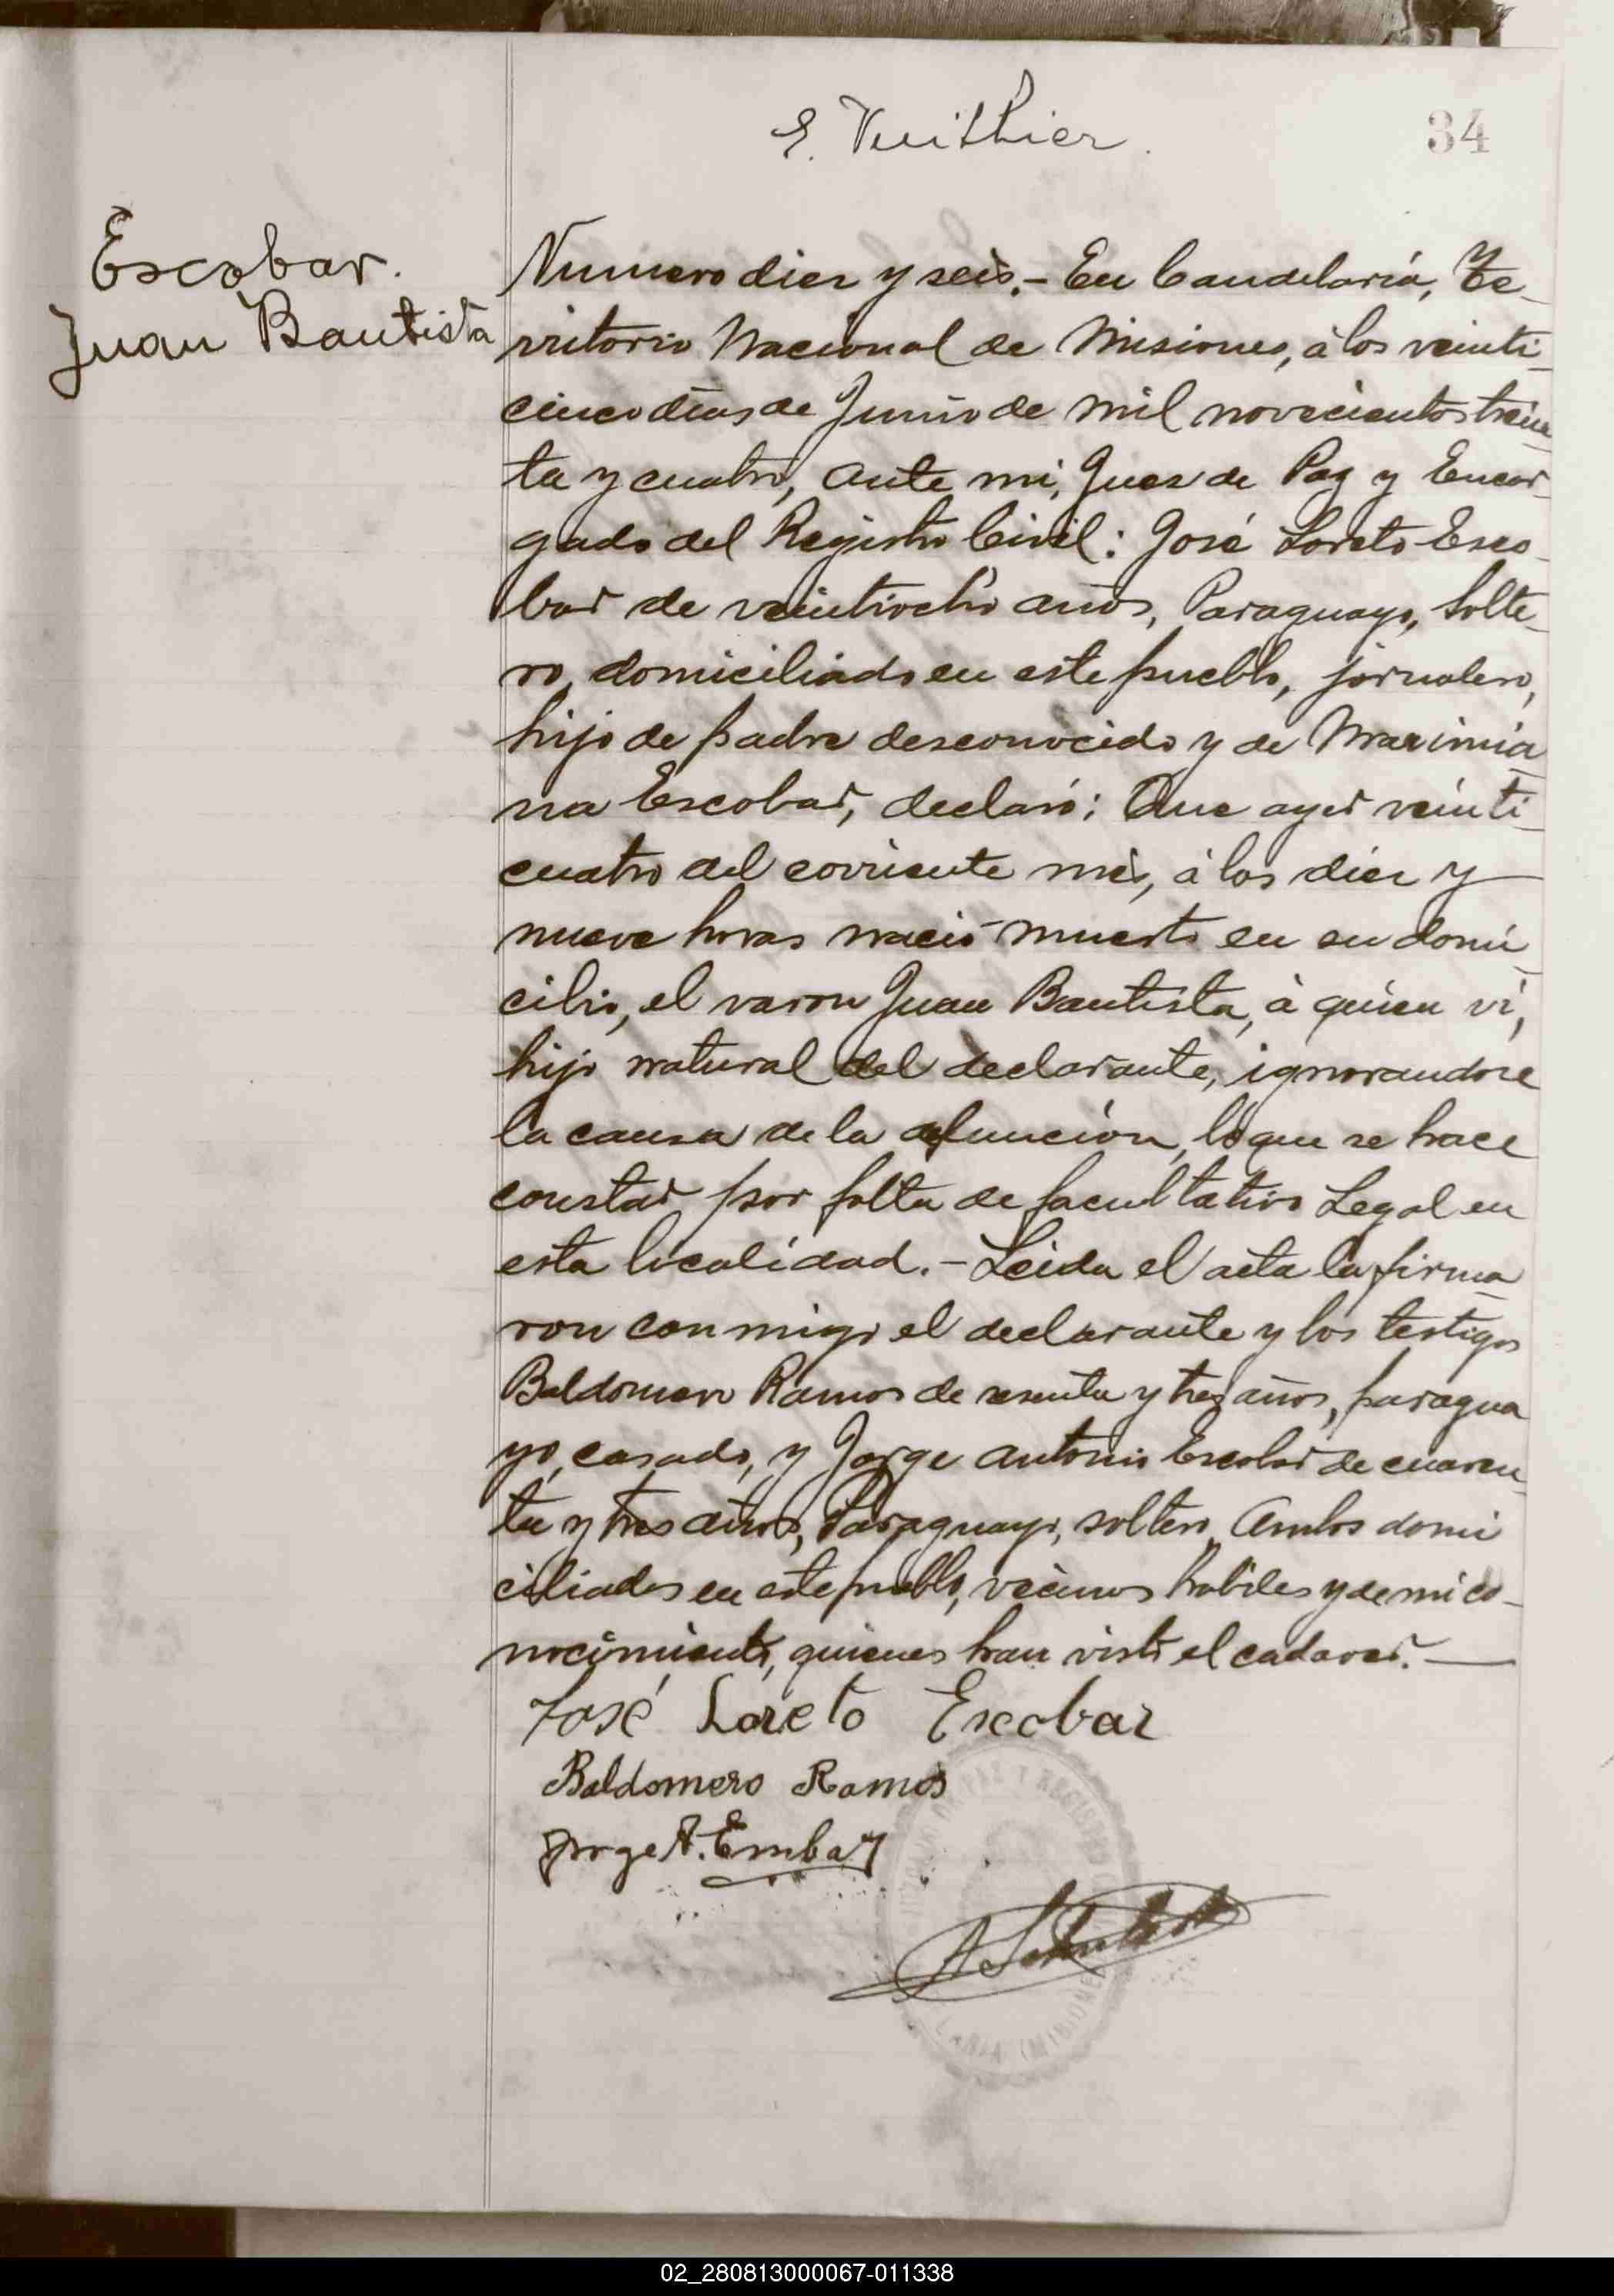 E. Vuithier.
34
Escobar.
Juan Bautista
Numero diez y seis.- En Candelaria, Te-
rritorio Nacional de Misiones, á los veinti-
cinco dias de Junio de mil novecientos trein-
ta y cuatro, ante mi, Juez de Paz y Encar-
gado del Registro Civil: José Loreto Esco-
bar de veintiocho años, Paraguayo, Solte-
ro, domiciliado en este pueblo, jornalero,
hijo de padre desconocido y de Maximia-
na Escobar, declaró: Que ayer veinti-
cuatro del corriente mes, á las diez y
nueve horas nació muerto en su domi-
cilio, el varon Juan Bautista, à quien ví,
hijo natural del declarante, ignorandose
la causa de la defunción, lo que se hace
constar por falta de facultativo Legal en
esta localidad.- Leida el acta la firma-
ron conmigo el declarante y los testigos
Baldomero Ramos de sesenta y tres años, paragua
yo, casado, y Jorge Antonio Escobar de cuaren-
ta y tres años, Paraguayo, soltero, Ambos domi
ciliados en este pueblo, vecinos habiles y de mi co-
nocimiento, quienes han visto el cadaver.
José Loreto Escobar
Baldomero Ramos
Jorge A. Escobar
02_280813000067-011338